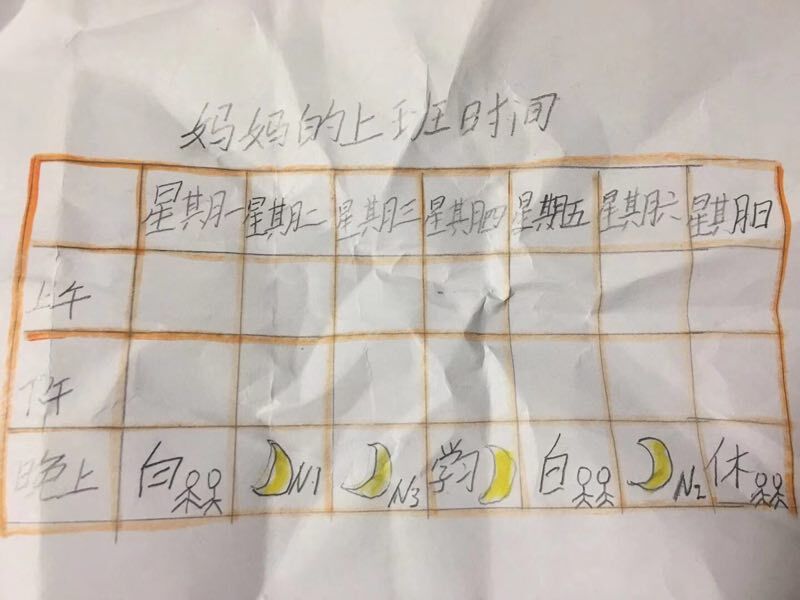 妈妈的上班时间
星期一 星期二 星期三 星期四 星期五 星期六 星期日
上午
下午
晚上 白 N1 N3 学习 白 N2 休